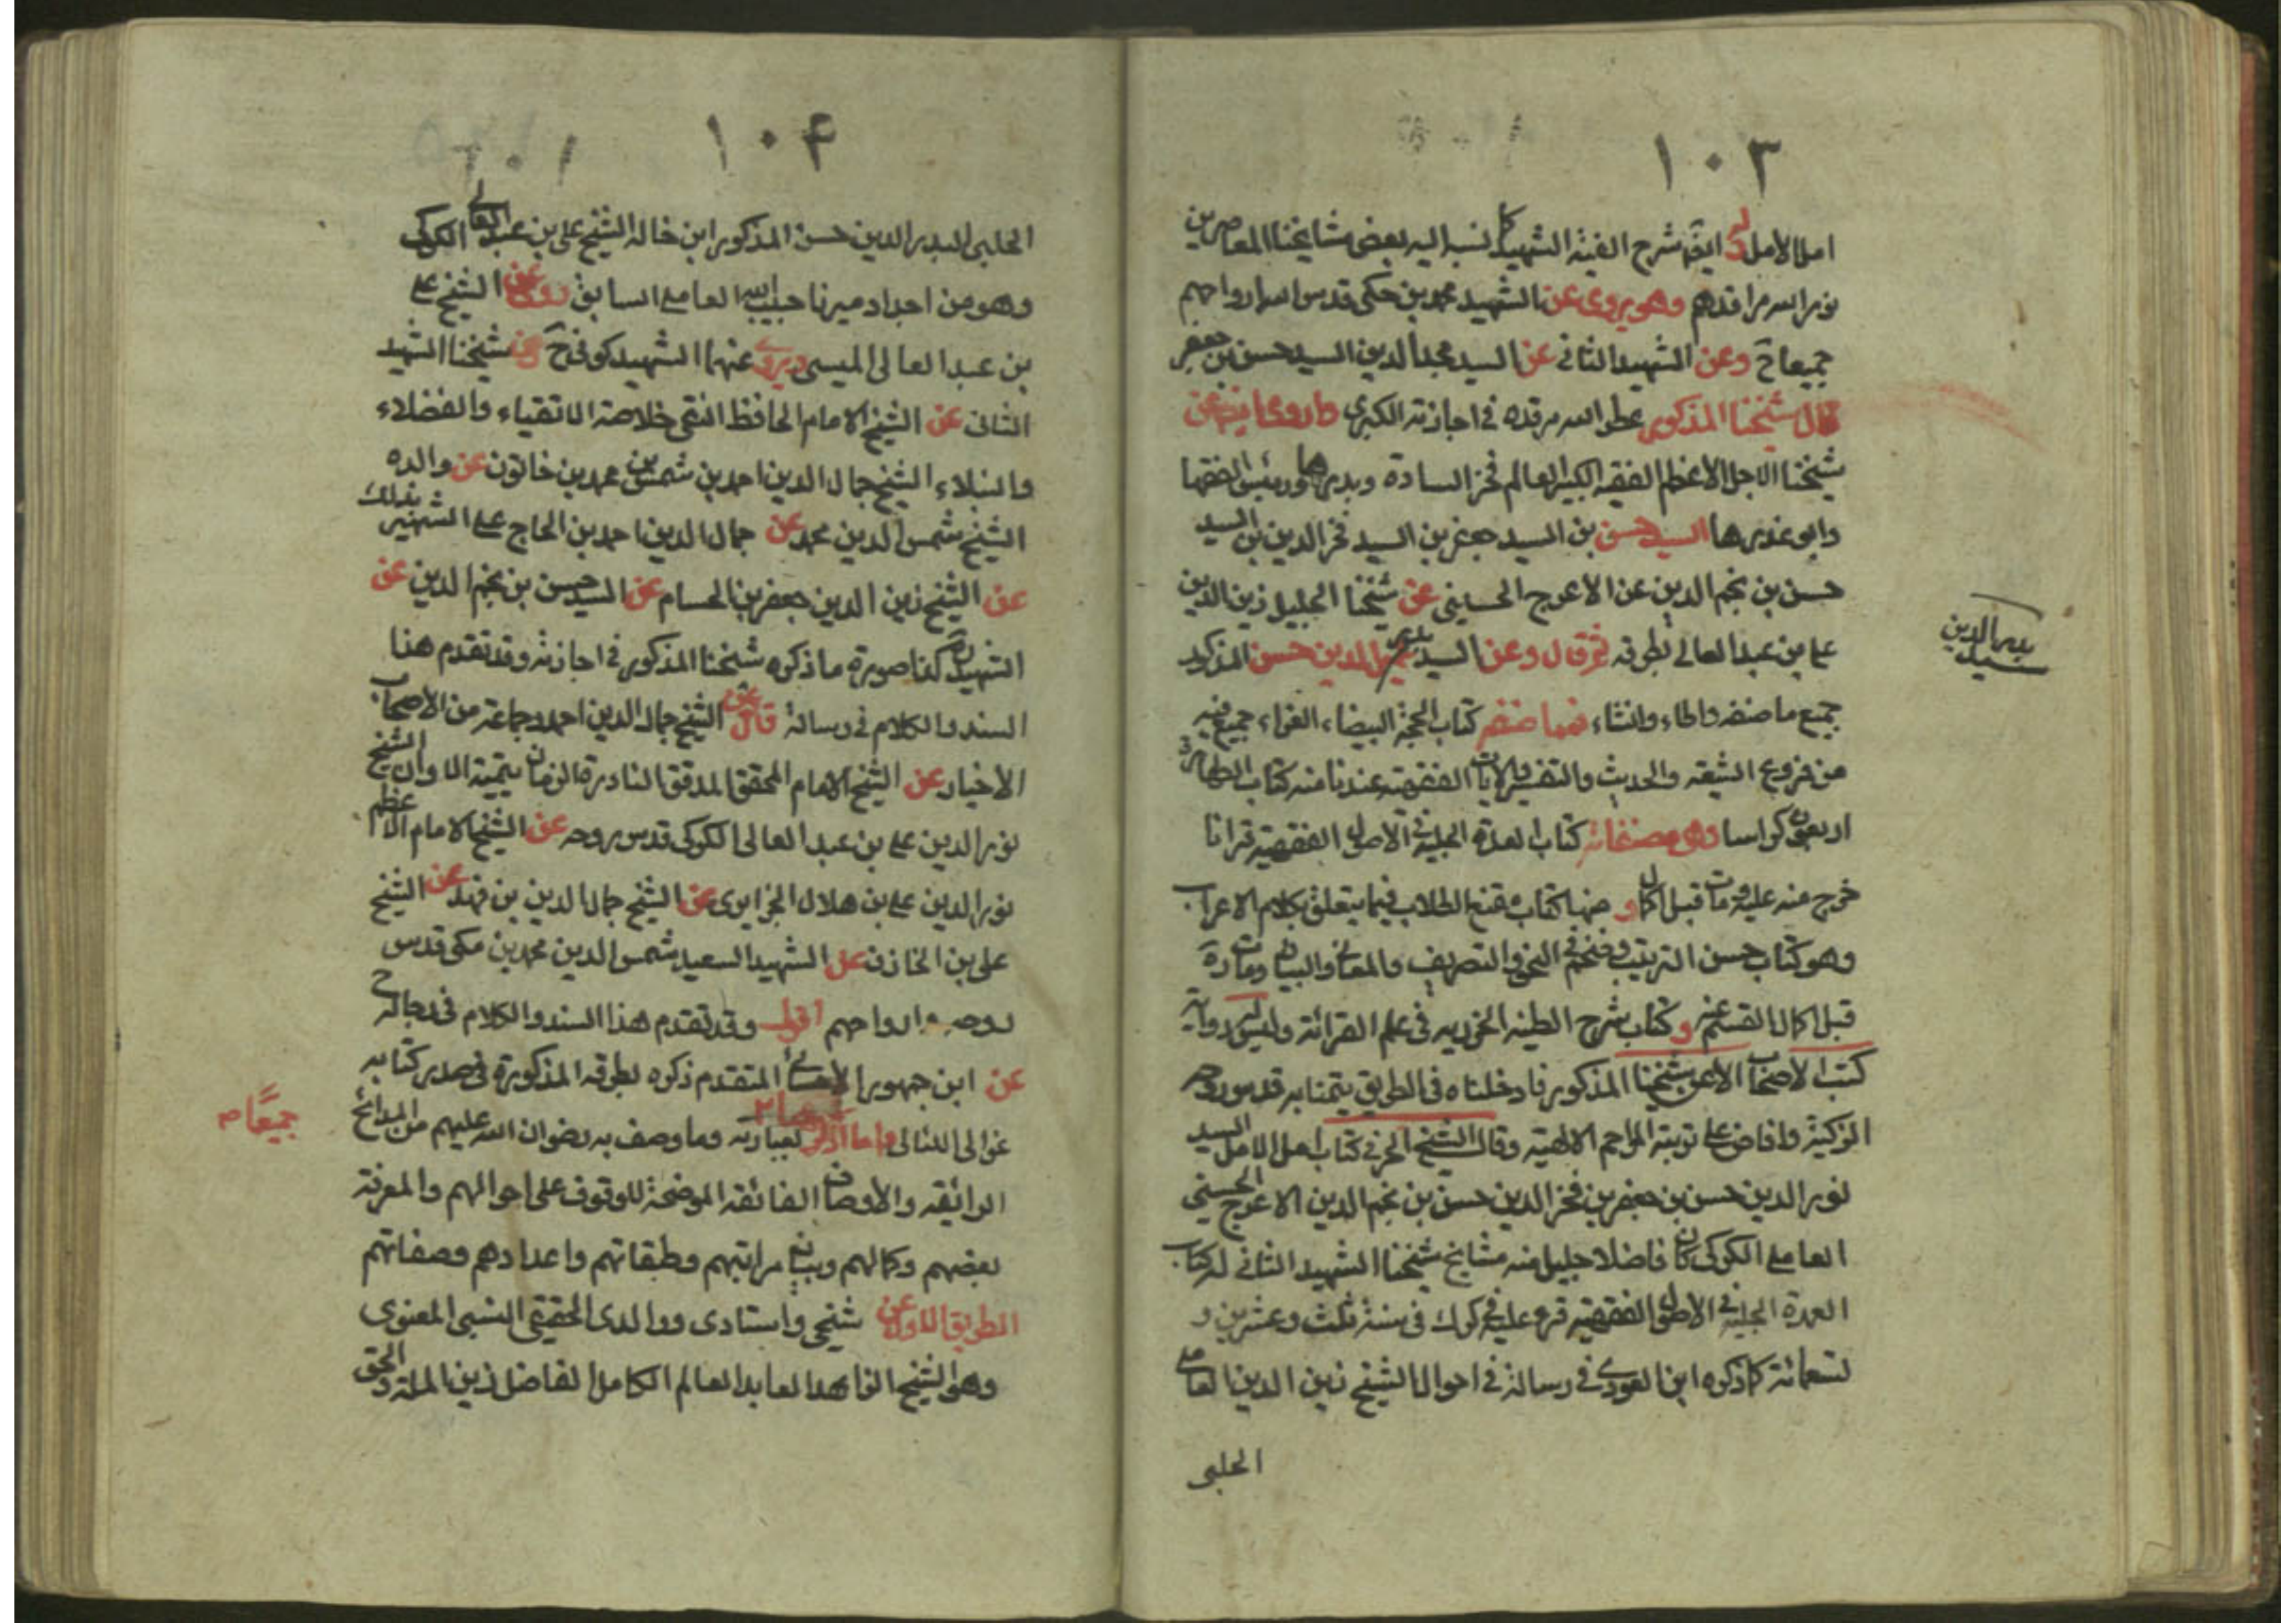 ١٠٣
امل الامل وله ايضا شرح الفية الشهيد كما نسبه اليه بعض مشايخنا المعاصرين
نور الله مراقدهم وهو يروى عن الشهيد محمد بن مكى قدس الله ارواحهم
جميعا ح وعن الشهيد الثانى عن السيد بدر الدين السيد حسن بن جعفر
قال شيخنا المذكور عطر الله مرقده فى اجازته الكبرى وارويها ايضا عن
شيخنا الاجل الاعظم الفقيه الكبير العالم فخر السادة وبدرها ورئيس الفقها
وابو عذرها السيد حسن بن السيد جعفر بن السيد فخر الدين بن السيد
حسن بن نجم الدين عن الاعرج الحسينى عن شيخنا الجليل زين الدين
على بن عبد العالى بطرقه ثم قال وعن السيد بدر الدين حسن المذكور
جميع ما صنفه واملاه وانشاه فمما صنفه كتاب المحجة البيضاء الغراء جمع فيه
من فروع الشيعه والحديث والتفسير والايات الفقهيه عندنا منه كتاب الطهارة
اربعون كراسا ومن مصنفاته كتاب العمدة الجلية فى الاصول الفقهية قرانا
خرج منه عليه ومات قبل اكماله و منها كتاب مقنع الطلاب فيما يتعلق بكلام الاعراب
وهو كتاب حسن الترتيب ضخم فى النحو والتصريف والمعانى والبيان ومات ره
قبل اكمال القسم عنه وكتاب شرح الطيبه الجزريه فى علم القرائة وليس له رواية
كتب الاصحاب الا عن شيخنا المذكور فادخلناه فى الطريق تيمنا به قدس روحه
الزكية وافاض على تربته المراحم الالهية وقال الشيخ الحر فى كتاب امل الامل السيد
نور الدين حسن بن جعفر بن فخر الدين حسن بن نجم الدين الاعرج الحسينى
العاملى الكركى كان فاضلا جليل منه مشايخ شيخنا الشهيد الثانى له كتاب
العمدة الجلية فى الاصول الفقهيه قرء عليه فى كرك فى سنة ثلث وعشرين و
تسعمائة كما ذكره ابن العودى فى رسالة فى احوال الشيخ زين الدين العاملى
الحلبى
بدر الدين
سيد
١٠۴
الحلبى السيد بدر الدين حسن المذكور ابن خالة الشيخ على بن عبد العالى الكركى
وهو من اجداد ميرزا حبيب الله العاملى السابق روى عن الشيخ على
بن عبد العالى الميسى ويروى عنهما الشهيد كوفى ح وعن شيخنا الشهيد
الثانى عن الشيخ الامام الحافظ التقى خلاصة الاتقياء والفضلاء
والنبلاء الشيخ جمال الدين احمد بن شمس الدين محمد بن خاتون عن والده
الشيخ شمس الدين محمد عن جمال الدين احمد بن الحاج على الشهير بذلك
عن الشيخ زين الدين جعفر بن الحسام عن السيد حسن بن نجم الدين عن
الشهيد ره كذا صورة ما ذكره شيخنا المذكور فى اجازته وقد تقدم هذا
السند والكلام فى رسالة قال وعن الشيخ جمال الدين احمد وجماعة من الاصحاب
الاخيار عن الشيخ الامام المحقق المدقق النادرة الزمان يتيمة الاوان الشيخ
نور الدين على بن عبد العالى الكركى قدس روحه عن الشيخ الامام الاعظم
نور الدين على بن هلال الجزايرى عن الشيخ جمال الدين بن فهد عن الشيخ
على بن الخازن عن الشهيد السعيد شمس الدين محمد بن مكى قدس
روحه وارواحهم اقول وقد تقدم هذا السند والكلام فى رجاله ح
عن ابن جمهور الاحسائى المتقدم ذكره بطرقه المذكورة فى صدر كتابه
غوالى اللئالى واما اذكر بعبارته وما وصف به رضوان الله عليهم من المدائح
الرائيقه والاوصاف الفائقه الموضحة للوقوف على احوالهم والمعرفة
بعضهم وكمالهم وبيان مراتبهم وطبقاتهم واعدادهم وصفاتهم
الطريق الاول عن شيخى واستادى ووالدى الحقيقى النسبى المعنوى
وهو الشيخ الزاهد العابد العالم الكامل الفاضل زين الملة والحق
جميعا م